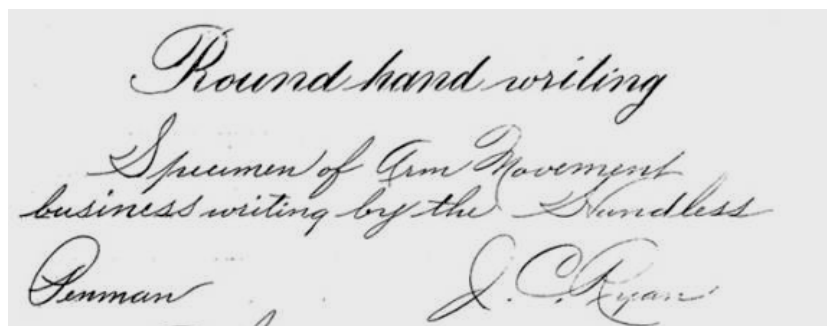 Round hand writing
Specimen of Arm Movement
business writing by the Handless
Penman J. C. Ryan